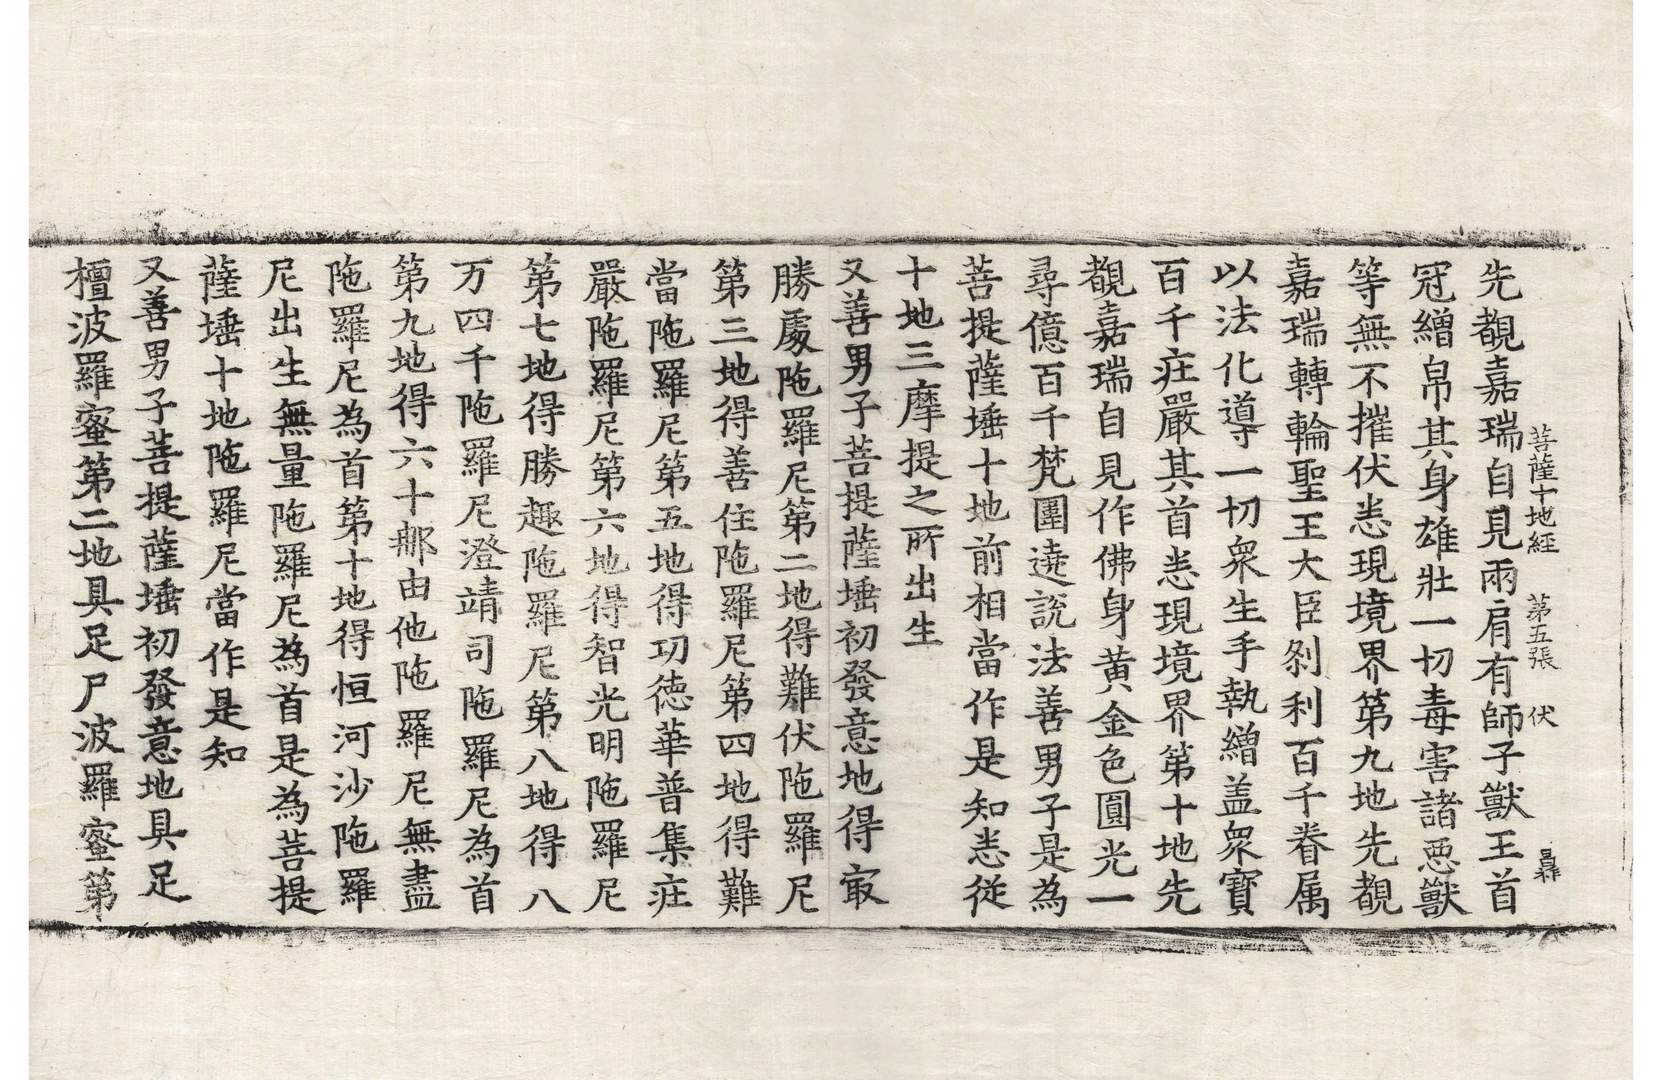 菩薩十地経 第五張 伏
先覩嘉瑞自見兩肩有師子獸王首
冠繒帛其身雄壯一切毒害諸惡獸
等無不摧伏悉現境界第九地先覩
嘉瑞轉輪聖王大臣剎利百千眷属
以法化導一切衆生手執繒盖衆寶
百千疘嚴其首悉現境界第十地先
覩嘉瑞自見作佛身黃金色圓光一
尋億百千梵圍遶說法善男子是為
菩提薩埵十地前相當作是知悉従
十地三摩提之所出生
又善男子菩提薩埵初發意地得㝡
勝處陁羅尼第二地得難伏陁羅尼
第三地得善住陁羅尼第四地得難
當陁羅尼第五地得功徳華普集疘
嚴陁羅尼第六地得智光明陁羅尼
第七地得勝趣陁羅尼第八地得八
万四千陁羅尼澄靖司陁羅尼為首
第九地得六十那由他陁羅尼無盡
陁羅尼為首第十地得恒河沙陁羅
尼出生無量陁羅尼為首是為菩提
薩埵十地陁羅尼當作是知
又善男子菩提薩埵初發意地具足
檀波羅蜜第二地具足尸波羅蜜第